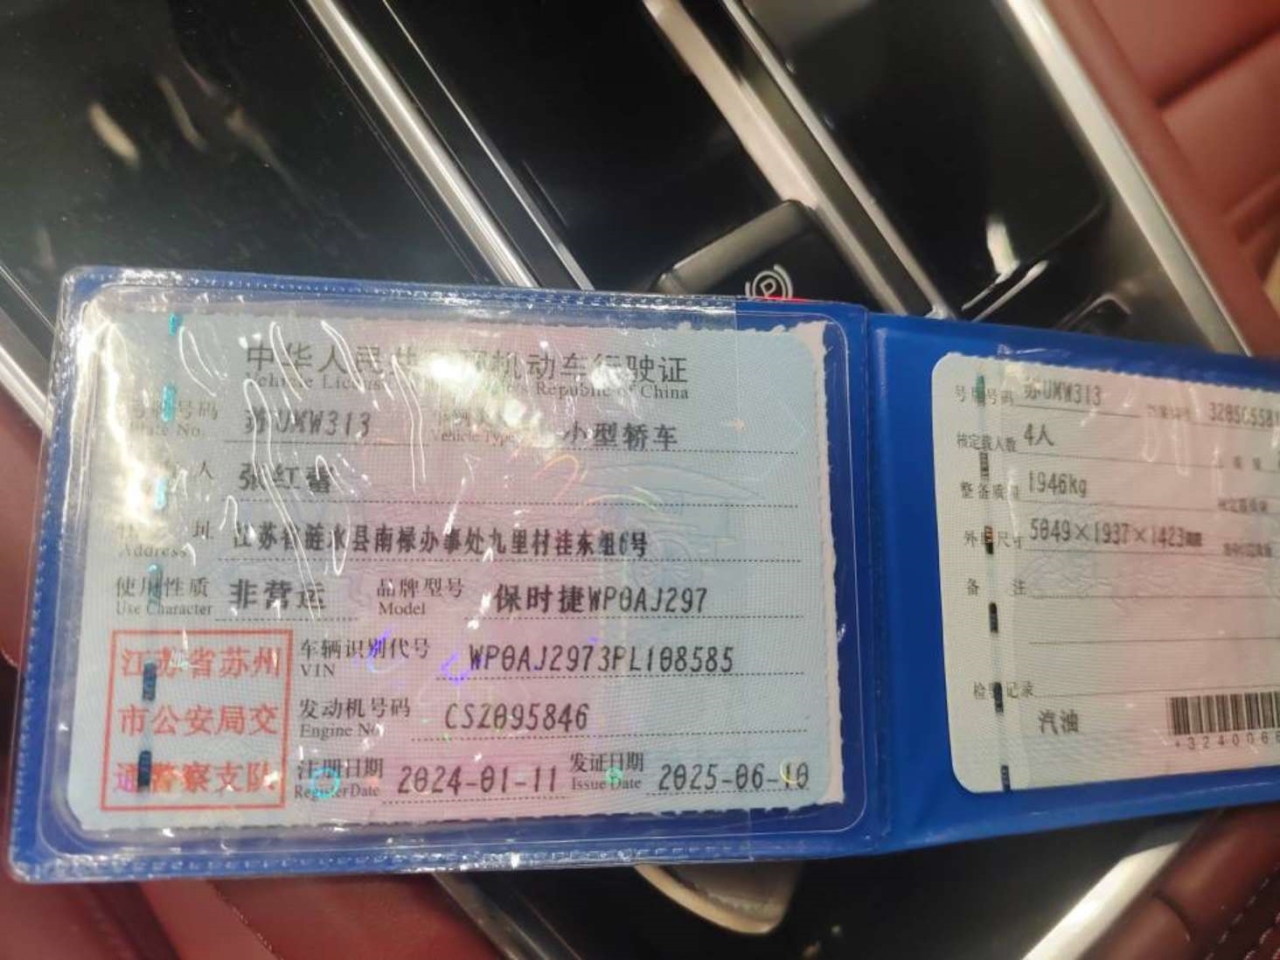 中华人民共 机动车行驶证
Vehicle License Republic of China
号码 苏UMW313
Plate No. Vehicle Type 小型轿车
人 张红
址 江苏省涟水县南禄办事处九里村洼东组6号
Address
使用性质 非营运 品牌型号 保时捷WP0AJ297
Use Character Model
江苏省苏州
市公安局交
通警察支队
车辆识别代号 WP0AJ2973PL108585
VIN
发动机号码 CSZ095846
Engine No.
注册日期 2024-01-11 发证日期 2025-06-10
Register Date Issue Date
号牌号码 苏UMW313 3205C558
核定载人数 4人
整备质量 1946kg
外廓尺寸 5049×1937×1423
备 注
检验记录
汽油
3240068
P